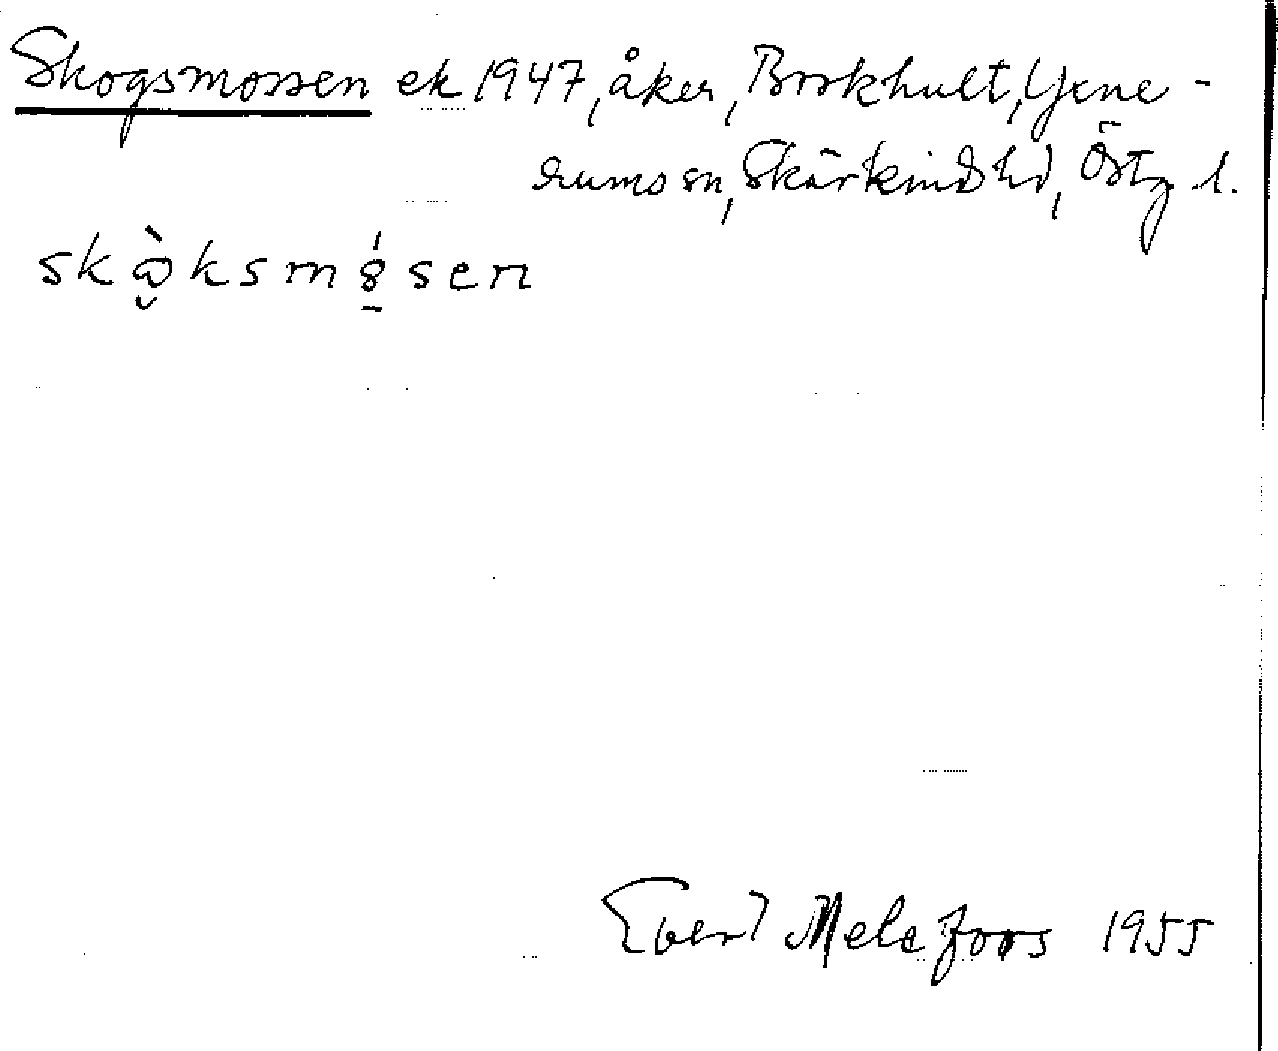 Skogsmossen ek 1947, åker, Brokhult, Yxne-
rums sn, Skärkinds hd, Östg. l.
Evert Melefors 1955